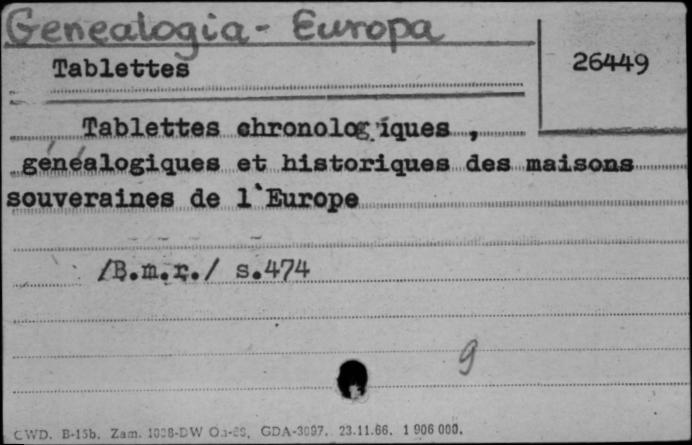 Genealogia - Europa
Tablettes
26449
Tablettes chronologiques,
généalogiques et historiques des maisons
souveraines de l'Europe
/B.m.r./ s.474
9
CWD. B-15b. Zam. GDA-3097. 23.11.66. 1 906 000.